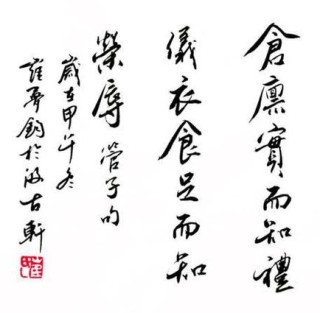 倉廪實而知禮
儀衣食足而知
榮辱 管子句
歲在甲午冬
崔夢鈞於汲古軒
崔